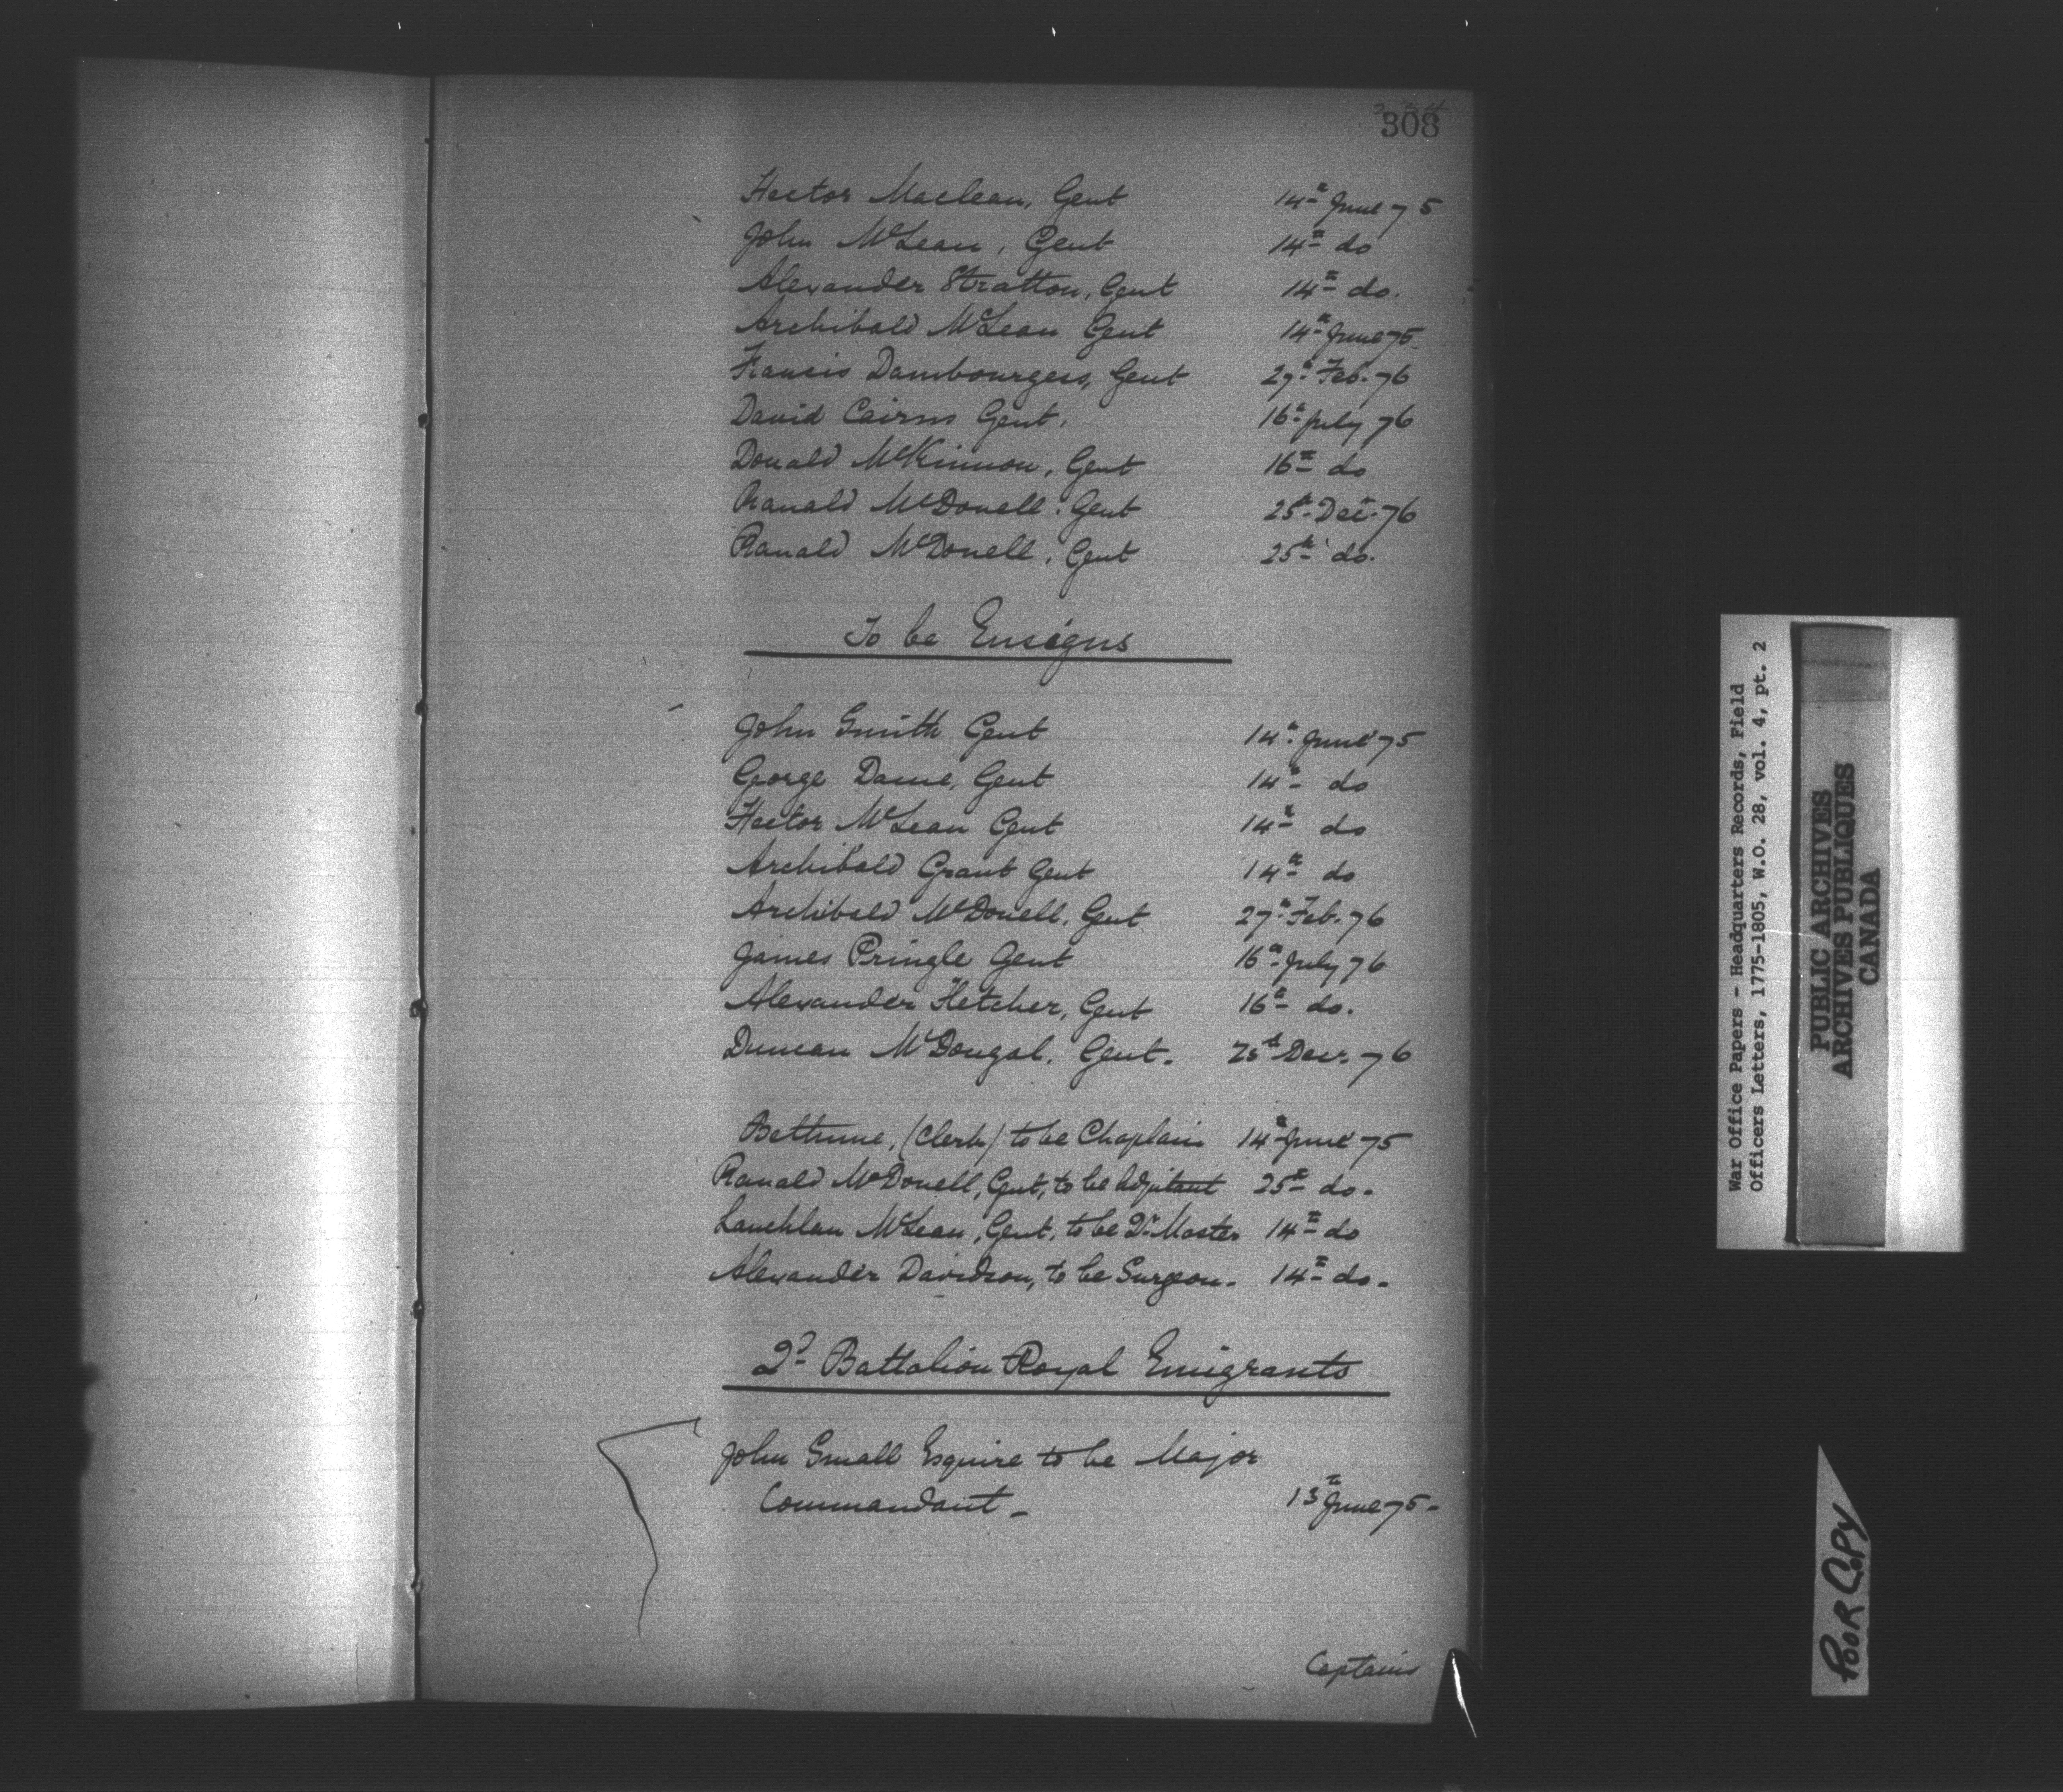 308
Hector Maclean, Gent 14th June 75
John McLean, Gent 14th do
Alexander Stratton, Gent 14th do.
Archibald McLean Gent 14th June 75
Francis Dambourgess, Gent 27th Feb. 76
David Cairns Gent. 16th July 76
Donald McKinnon, Gent 16th do
Ranald McDonell, Gent 25th Dec. 76
Ranald McDonell, Gent 25th do.
To be Ensigns
John Smith Gent 14th June 75
George Dame, Gent 14th do
Hector McLean Gent 14th do
Archibald Grant Gent 14th do
Archibald McDonell, Gent 27th Feb. 76
James Pringle Gent 16th July 76
Alexander Fletcher, Gent 16th do.
Duncan McDougal, Gent. 25th Decr. 76
Bethune, (Clerk) to be Chaplain 14th June 75
Ranald McDonell, Gent, to be Adjutant 25th do.
Lauchlan McLean, Gent, to be Qr Master 14th do
Alexander Davidson, to be Surgeon. 14th do.
2d Battalion Royal Emigrants
John Small Esquire to be Major
Commandant - 13th June 75 -
Captains
War Office Papers - Headquarters Records, Field
Officers Letters, 1775-1805, W.O. 28, vol. 4, pt. 2
PUBLIC ARCHIVES
ARCHIVES PUBLIQUES
CANADA
POOR COPY